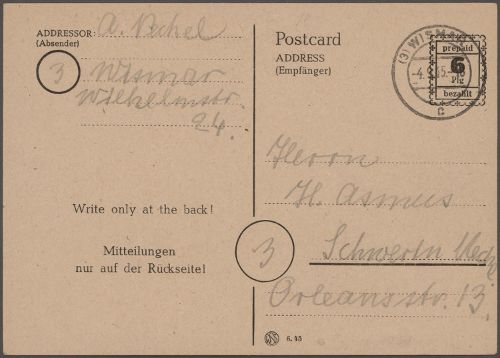 ADDRESSOR: A. Pechel
(Absender)
3 Wismar
Wilhelmstr.
24.
Write only at the back!
Mitteilungen
nur auf der Rückseite!
Postcard
ADDRESS
(Empfänger)
(3) WISMAR
-4. 45.-
c
prepaid
6
Pfg
bezahlt
Herrn
H. Asmus
3 Schwerin Meckl
Orleansstr. 13.
6. 45